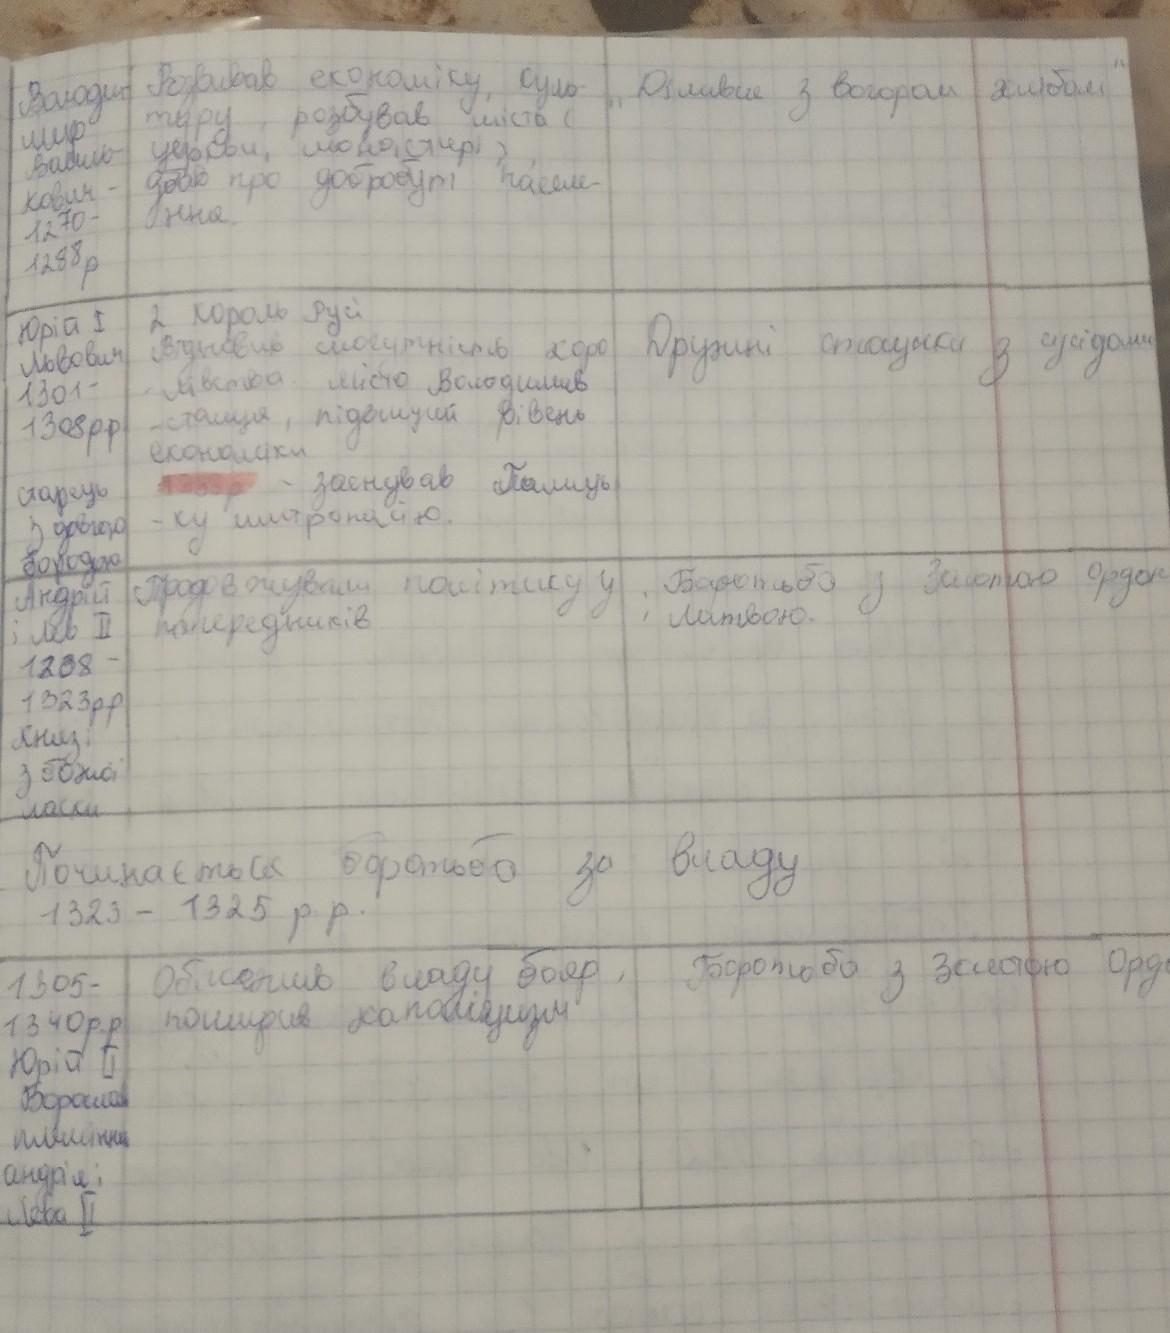 Володи
мир
Василь-
кович -
1270-
1288р
Розвивав економіку, куль-
туру, розбував міста (
церкви, монастирі),
дбав про добробут населе-
ння.
„Ділився з ворогом хлібом"
Юрій І
Львович
1301-
1308рр
старець
з довгою
бородою
2 король Русі
Відновив могутність коро
-лівства. місто Володимив
-столиця, підвищуий рівень
економіки
- заснував Галиць
-ку митрополію.
Дружні стосунки з сусідами
Андрій
і Лев ІІ
1308-
1323рр
Князі
з божої
ласки
Продовжували політику у
попередників
Боротьба з Золотою Ордою
і Литвою.
Починається боротьба за владу
1323 - 1325 р.р.
1305-
1340р.р
Юрій ІІ
Болеслав
племінник
андрія і
Лева ІІ
Обмежив владу бояр,
поширив католицизм
Боротьба з Золотою Ордо